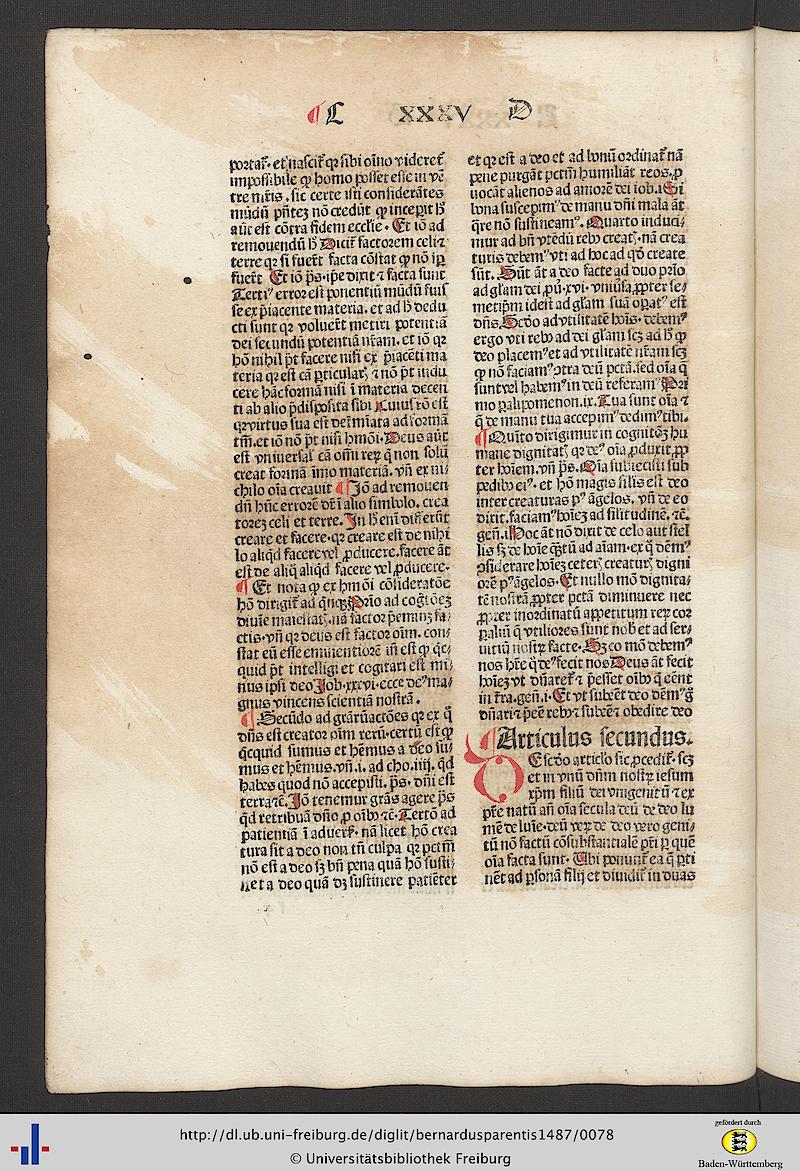 ¶ C XXXV D
portat̄. et nascit̄ qꝛ sibi oīno videret̄
impossibile ꝙ homo posset esse in vē
tre mr̄is. sic certe isti considerātes
mūdū pn̄tez nō credūt ꝙ inceperit hͦ
aūt est cōtra fidem ecclīe. Et iō ad
remouendū hͦ Dicit̄ factorem celi ⁊
terre qꝛ si fuert̄ facta cōstat ꝙ nō sp̄
fuert̄ Et iō ps̄. ip̄e dixit ⁊ facta sunt
Tertiꝰ error est ponentiū mūdū fuis
se ex p̄iacente materia. et ad hͦ dedu
cti sunt qꝛ voluert̄ metiri potentiā
dei secundū potentiā nr̄am. et iō qꝛ
hō nihil pt̄ facere nisi ex p̄iacēti ma
teria qꝛ est cā ꝑticularꝭ ⁊ nō pt̄ indu
cere hāc formā nisi ī materia decen
ti ab alio p̄disposita sibi Cuius rō est
qꝛ virtus sua est det̄mīata ad formā
tm̄. et iō nō pt̄ nisi hmōi. Deus aūt
est vniuersal̄ cā om̄i reꝝ q̄ non solū
creat formā īmo materiā. vn̄ ex ni⸗
chilo oīa creauit ¶ Iō ad remouen
dū hūc errorē dr̄ ī alio simbolo. crea
torez celi et terre. In hͦ enī differūt
creare et facere. qꝛ creare est de nihi
lo aliqd̄ facere vel ꝓducere. facere āt
est de aliq̄ aliqd̄ facere vel ꝓducere.
¶ Et nota ꝙ ex hmōi cōsideratōe
hō dirigit̄ ad qͥnqꝫ Prīo ad cogͥtōez
diuīe maiestatꝭ. nā factor p̄eminꝫ fa⸗
ctis. vn̄ qꝛ deus est factor oīm. con⸗
stat eū esse eminentiorē in est ꝙ qͥc⸗
quid pt̄ intelligi et cogitari est mi⸗
nus ipsi deo Job. xxxvi. ecce deꝰ ma⸗
gnus vincens scientiā nostrā.
¶ Secūdo ad gr̄aꝝ actōes qꝛ ex q̄
dn̄s est creator oīm rerū. certū est ꝙ
qͥcquid sumus et hēmus a deo su⸗
mus et hēmus. vn̄. i. ad cho. iiij. qd̄
habes quod nō accepisti. ps̄. dn̄i est
terra ⁊c̄. Iō tenemur gr̄as agere ps̄
qd̄ retribuā dn̄o ꝓ oībꝰ ⁊c̄. Tertō ad
patientiā ī aduerẜ. nā licet hō crea
tura sit a deo non tn̄ culpa qꝛ pctm̄
nō est a deo sꝫ bn̄ pena quā hō susti⸗
net a deo quā dꝫ sustinere patiēter
et qꝛ est a deo et ad bonū ordinat̄ nā
pene purgāt pctm̄ humiliāt reos. ꝓ
uocāt alienos ad amorē dei iob. i. Si
bona suscepimꝰ de manu dn̄i mala āt
q̄re nō sustineamꝰ. Quarto induci⸗
mur ad bn̄ vtēdū rebꝰ creatꝭ. nā crea
turis debemꝰ vti ad hoc ad qd̄ create
sūt. Sūt āt a deo facte ad duo pͥmo
ad gl̄am dei. ꝓu. xvi. vniūsa ꝓpter se⸗
metip̄m idest ad gl̄am suā oꝑatꝰ est
dn̄s. Scd̄o ad vtilitatē hoīs. debemꝰ
ergo vti rebꝰ ad dei gl̄am scꝫ ad hͦ ꝙ
deo placemꝰ et ad vtilitatē nr̄am scꝫ
ꝙ nō faciamꝰ ꝯtra deū pctā. sed oīa q̄
sunt vel habemꝰ in deū referamꝰ Pri
mo ꝑalipomenon. ix. Tua sunt oīa ⁊
q̄ de manu tua accepimꝰ dedimꝰ tibi.
¶ Quīto dirigimur in cognitōꝫ hu
mane dignitatꝭ qꝛ deꝰ oīa ꝓduxit ꝓp
ter hoīem. vn̄ ps̄. Oīa subiecisti sub
pedibꝰ eiꝰ. et hō magis sil̄is est deo
inter creaturas pꝰ āgelos. vn̄ de eo
dixit. faciamꝰ hoīez ad silitudinē. ⁊c̄.
gen̄. i. Hoc āt nō dixit de celo aut stel
lis sꝫ de hoīe qͣꝫtū ad aīam. ex q̄ dēmꝰ
ꝯsiderare hoīez ceterꝭ creaturꝭ digni
orē pꝰ āgelos. Et nullo mō dignita⸗
tē nostrā ꝓpter pctā diminuere nec
ꝓpter inordinatū appetitum reꝝ cor
ꝑaliū q̄ vtiliores sunt nobͥ et ad ser⸗
uitiū nostrꝝ facte. Sꝫ eo mō debemꝰ
nos hr̄e q̄ deꝰ fecit nos Deus āt fecit
hoīez vt dn̄aret̄ ⁊ p̄esset oībꝰ q̄ eēnt
in t̄ra. gen̄. i. Et vt subeēt deo dēmꝰ g̊
dn̄ari ⁊ p̄eē rebꝰ ⁊ subeē ⁊ obedire deo
¶ Articulus secundus.
DE scd̄o articl̄o sic ꝓcedit̄. scꝫ
et in vnū dn̄m nostꝝ iesum
xp̄m filiū dei vnigenitū ⁊ ex
pr̄e natū an̄ oīa secula deū de deo lu
mē de luīe. deū veꝝ de deo vero geni⸗
tū nō factū cōsubstantialē pr̄i ꝑ quē
oīa facta sunt. Vbi ponunt̄ ea q̄ ꝑti
nēt ad ꝑsonā filij et diuidit̄ in duas
http://dl.ub.uni-freiburg.de/diglit/bernardusparentis1487/0078
© Universitätsbibliothek Freiburg
gefördert durch
Baden-Württemberg